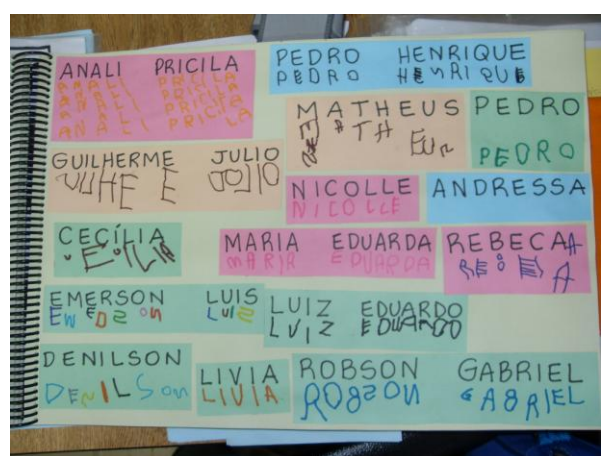 ANALI PRICILA
ANALI PRICILA
ANALI PRICILA
ANALI PRICILA
ANALI PRICILA
PEDRO HENRIQUE
PEDRO HENRIQUE
MATHEUS
PEDRO
PEDRO
GUILHERME JULIO
NICOLLE
NICOLLE
ANDRESSA
CECÍLIA
MARIA EDUARDA
MARIA EDUARDA
REBECA
EMERSON LUIS
LUIS
LUIZ EDUARDO
LUIZ EDUARDO
DENILSON
DENILSON
LIVIA
LIVIA
ROBSON GABRIEL
ROBSON GABRIEL